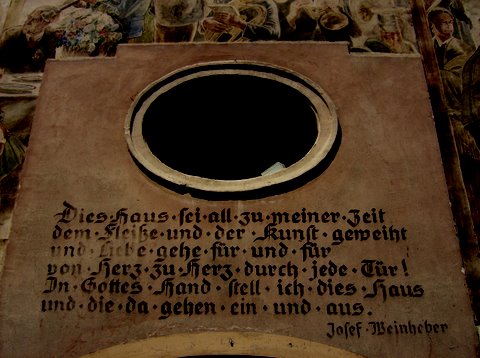 Dies·Haus·sei·all·zu·meiner·Zeit
dem·Fleiße·und·der·Kunst·geweiht
und·Liebe·gehe·für·und·für
von·Herz·zu·Herz·durch·jede·Tür!
In·Gottes·Hand·stell·ich·dies·Haus
und·die·da·gehen·ein·und·aus.
Josef·Weinheber